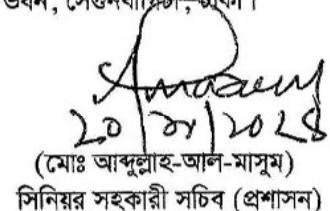 ভবন, সেগুনবাগিচা, ঢাকা।
(মোঃ আব্দুল্লাহ-আল-মাসুম)
সিনিয়র সহকারী সচিব (প্রশাসন)